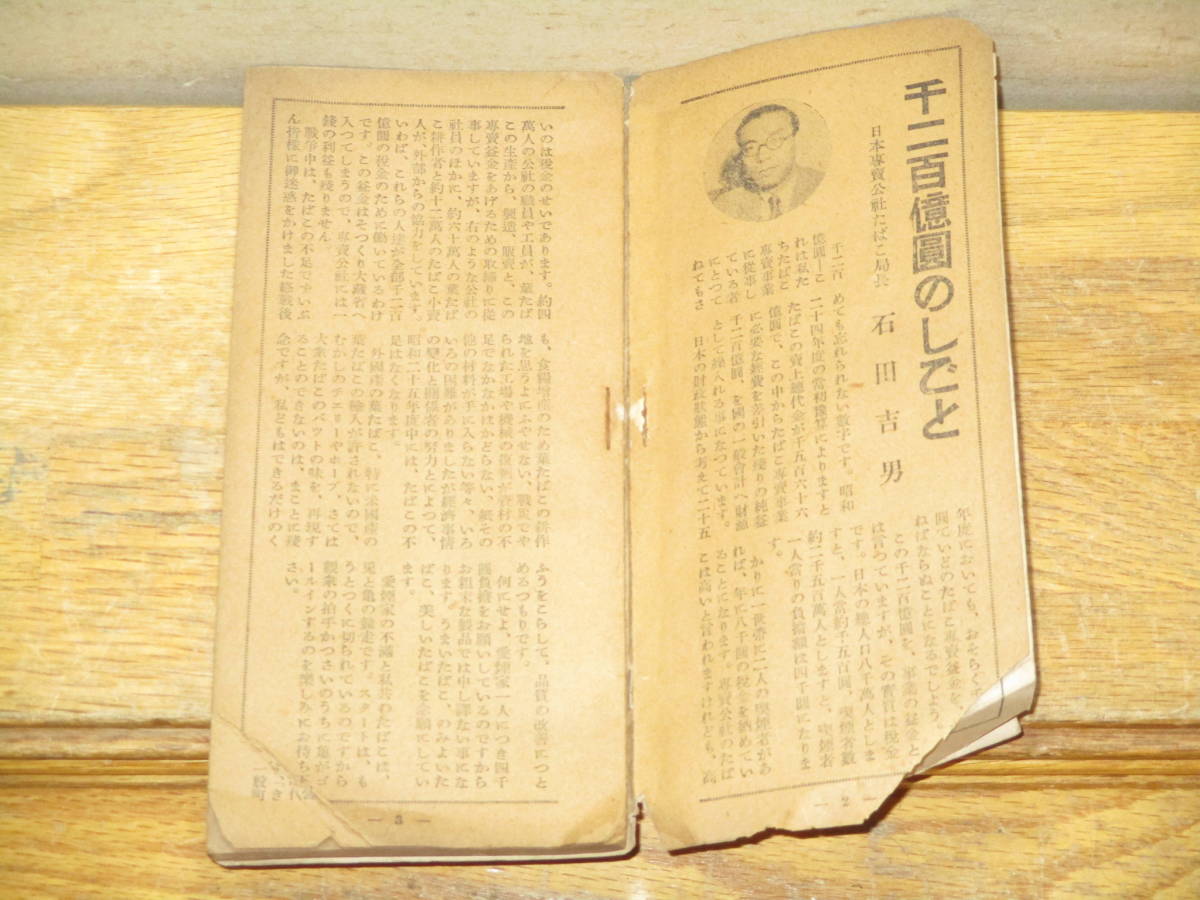 千二百億圓のしごと
日本專賣公社たばこ局長
石田吉男
千二百
億圓―こ
れは私た
ちたばこ
專賣事業
に從事し
ている者
にとつて
ねてもさ
めても忘れられない数字です。昭和
二十四年度の當初豫算によりますと
たばこの賣上總代金が千五百六十六
億圓で、この中からたばこ專賣事業
に必要な經費を差引いた殘りの純益
千二百億圓を國の一般會計へ財源
として繰入れる事になつています。
日本の財政狀態から考えて二十五
年度においても、おそらく千
圓ていどのたばこ專賣益金を、
ねばならぬことになるでしよう。
この千二百億圓を、事業の益金と
は言つていますが、その實質は税金
です。日本の總人口八千萬人としま
すと、一人當約千五百圓、喫煙者数
約二千五百萬人としますと、喫煙者
一人當りの負擔額は四千圓になりま
す。
かりに一世帶に二人の喫煙者があ
れば、年に八千圓の税金を納めてい
ることになります 專賣公社のたば
こは高いと言われますけれども、高
― 2 ―
いのは税金のせいであります。約四
萬人の公社の職員や工員が、葉たば
この生産から、製造、販賣と、この
專賣益金をあげるための取扱りに從
事していますが、右のような公社の
社員のほかに、約六十萬人の葉たば
こ耕作者と約十二萬人のたばこ小賣
人が、外部からの協力をしています。
いわば、これらの人達が全部千二百
億圓の税金のために働いているわけ
です。この益金はそつくり大藏省へ
入つてしまうので、專賣公社には一
錢の利益も殘りません
戰爭中は、たばこの不足でずいぶ
ん皆様に御迷惑をかけました終戰後
も、食糧増産のため葉たばこの耕作
地を思うよにふやせない、戰災でや
られた工場や機械の復舊が資材の不
足でなかなかはかどらない、紙その
他の材料が手に入らない等々、いろ
いろの困難がありましたが經濟事情
の變化と關係者の努力とによつて、
昭和二十五年度中には、たばこの不
足はなくなります。
外國産の葉たばこ、特に米國産の
葉たばこの輸入が許されないので、
むかしのチエリーやホープ、さては
大衆たばこのバットの味を、再現す
ることのできないのは、まことに殘
念ですが、私どもはできるだけのく
ふうをこらして、品質の改善につと
めるつもりです。
何にせよ、愛煙家一人につき四千
圓負擔をお願いしているのですから
お粗末な製品では申し譯ない事にな
ります。うまいたばこ、のみよいた
ばこ、美しいたばこを念願してい
ます。
愛煙家の不滿と私共のたばこは、
兎と亀の競走です。スタートは、も
うとつくに切られているのですから
觀衆の拍手かつさいのうちに亀がゴ
ールインするのを樂しみにお待ち下
さい。
― 3 ―